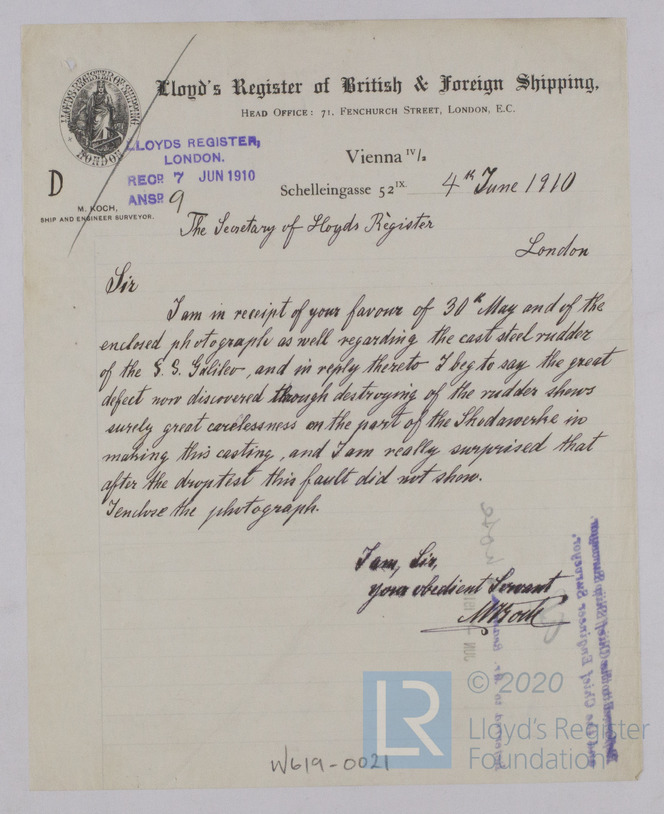 LLOYD'S REGISTER OF SHIPPING
LONDON
Lloyd's Register of British & Foreign Shipping,
HEAD OFFICE: 71, FENCHURCH STREET, LONDON, E.C.
LLOYDS REGISTER,
LONDON.
RECD 7 JUN 1910
ANSD 9
D
M. KOCH,
SHIP AND ENGINEER SURVEYOR.
Vienna IV/2
Schelleingasse 52 IX. 4th June 1910
The Secretary of Lloyds Register
London
Sir
I am in receipt of your favour of 30th May and of the
enclosed photograph as well regarding the cast steel rudder
of the S.S. Galileo, and in reply thereto I beg to say the great
defect now discovered through destroying of the rudder shows
surely great carelessness on the part of the Skodawerke in
making this casting, and I am really surprised that
after the droptest this fault did not show.
I enclose the photograph.
I am, Sir,
your obedient Servant
MKoch
© 2020
LR
Lloyd's Register
Foundation
W619-0021